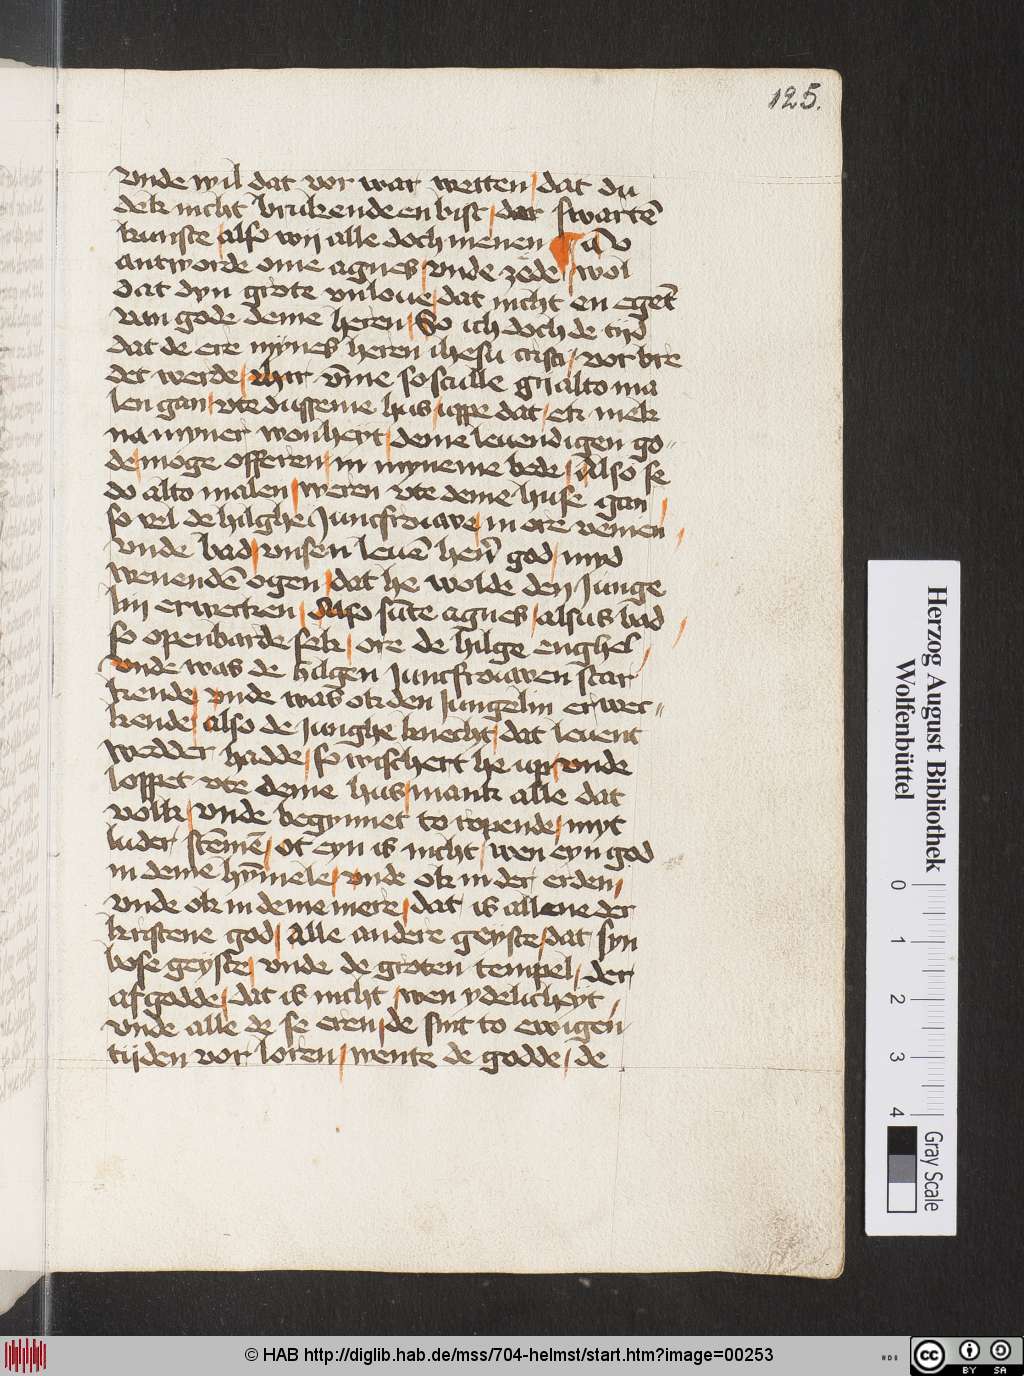 125.
vnde wil dat vor war wetten / dat du
dek nicht brukende en bist / der swartē
kunste / also wij alle doch menen
antworde ome agnes / vnde zede / wol
dat dyn grote vnloue / dat nicht en eget
van gode deme heren / So ich doch de tijd
dat de ere mynes heren ihesu cristi / vor bre
det werde / vm̄e so sculle gij alto ma
len gan / vte dusseme hus / uppe dat / ek mek
na myner wonheyt / deme leuendigen go
de / moge offeren / in myneme bede / Also se
do alto malen / weren vte deme huse gan /
so vel de hilghe Juncfrouwe / in ore venien /
vnde bad / vnsen leuē herē god / myd
wenendē ogen / dat he wolde den Junge
lin erwecken / Also sūte agnes / alsus bad /
so openbarde sek / ore de hilge enghel /
vnde was de hilgen Juncfrouwen star
kende / vnde was ok den Jungelin erwec
kende / also de Junghe knecht / dat leuent
wedder hadde / so wischert he up / vnde
loppet vte deme hus / mank alle dat
volk / vnde begynnet to ropende / myt
luder stēmē / ot eyn is nicht / wen eyn god
in deme hym̄ele / vnde ok in der erden /
vnde ok in deme mere / dat is allene der
kristene god / Alle andere geyste / dat syn
bose geyste / vnde de groten tempel / der
afgodde / dat is nicht / wen ydelicheyt /
vnde alle de se eren / de sint to ewigen
tijden vor loren / wente de godde / de
Herzog August Bibliothek
Wolfenbüttel
0 1 2 3 4
Gray Scale
© HAB http://diglib.hab.de/mss/704-helmst/start.htm?image=00253
HAB
cc BY SA